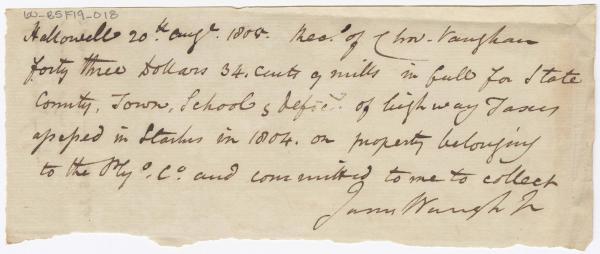 W-BSF19-018
Hallowell 20th Augt. 1805. Recd. of Chas. Vaughan
forty three Dollars 34. cents 9 mills in full for State
County, Town, School & deficy. of highway Taxes
assessed in Starks in 1804. on property belonging
to the Plyo. Co. and committed to me to collect
James Waugh Jr